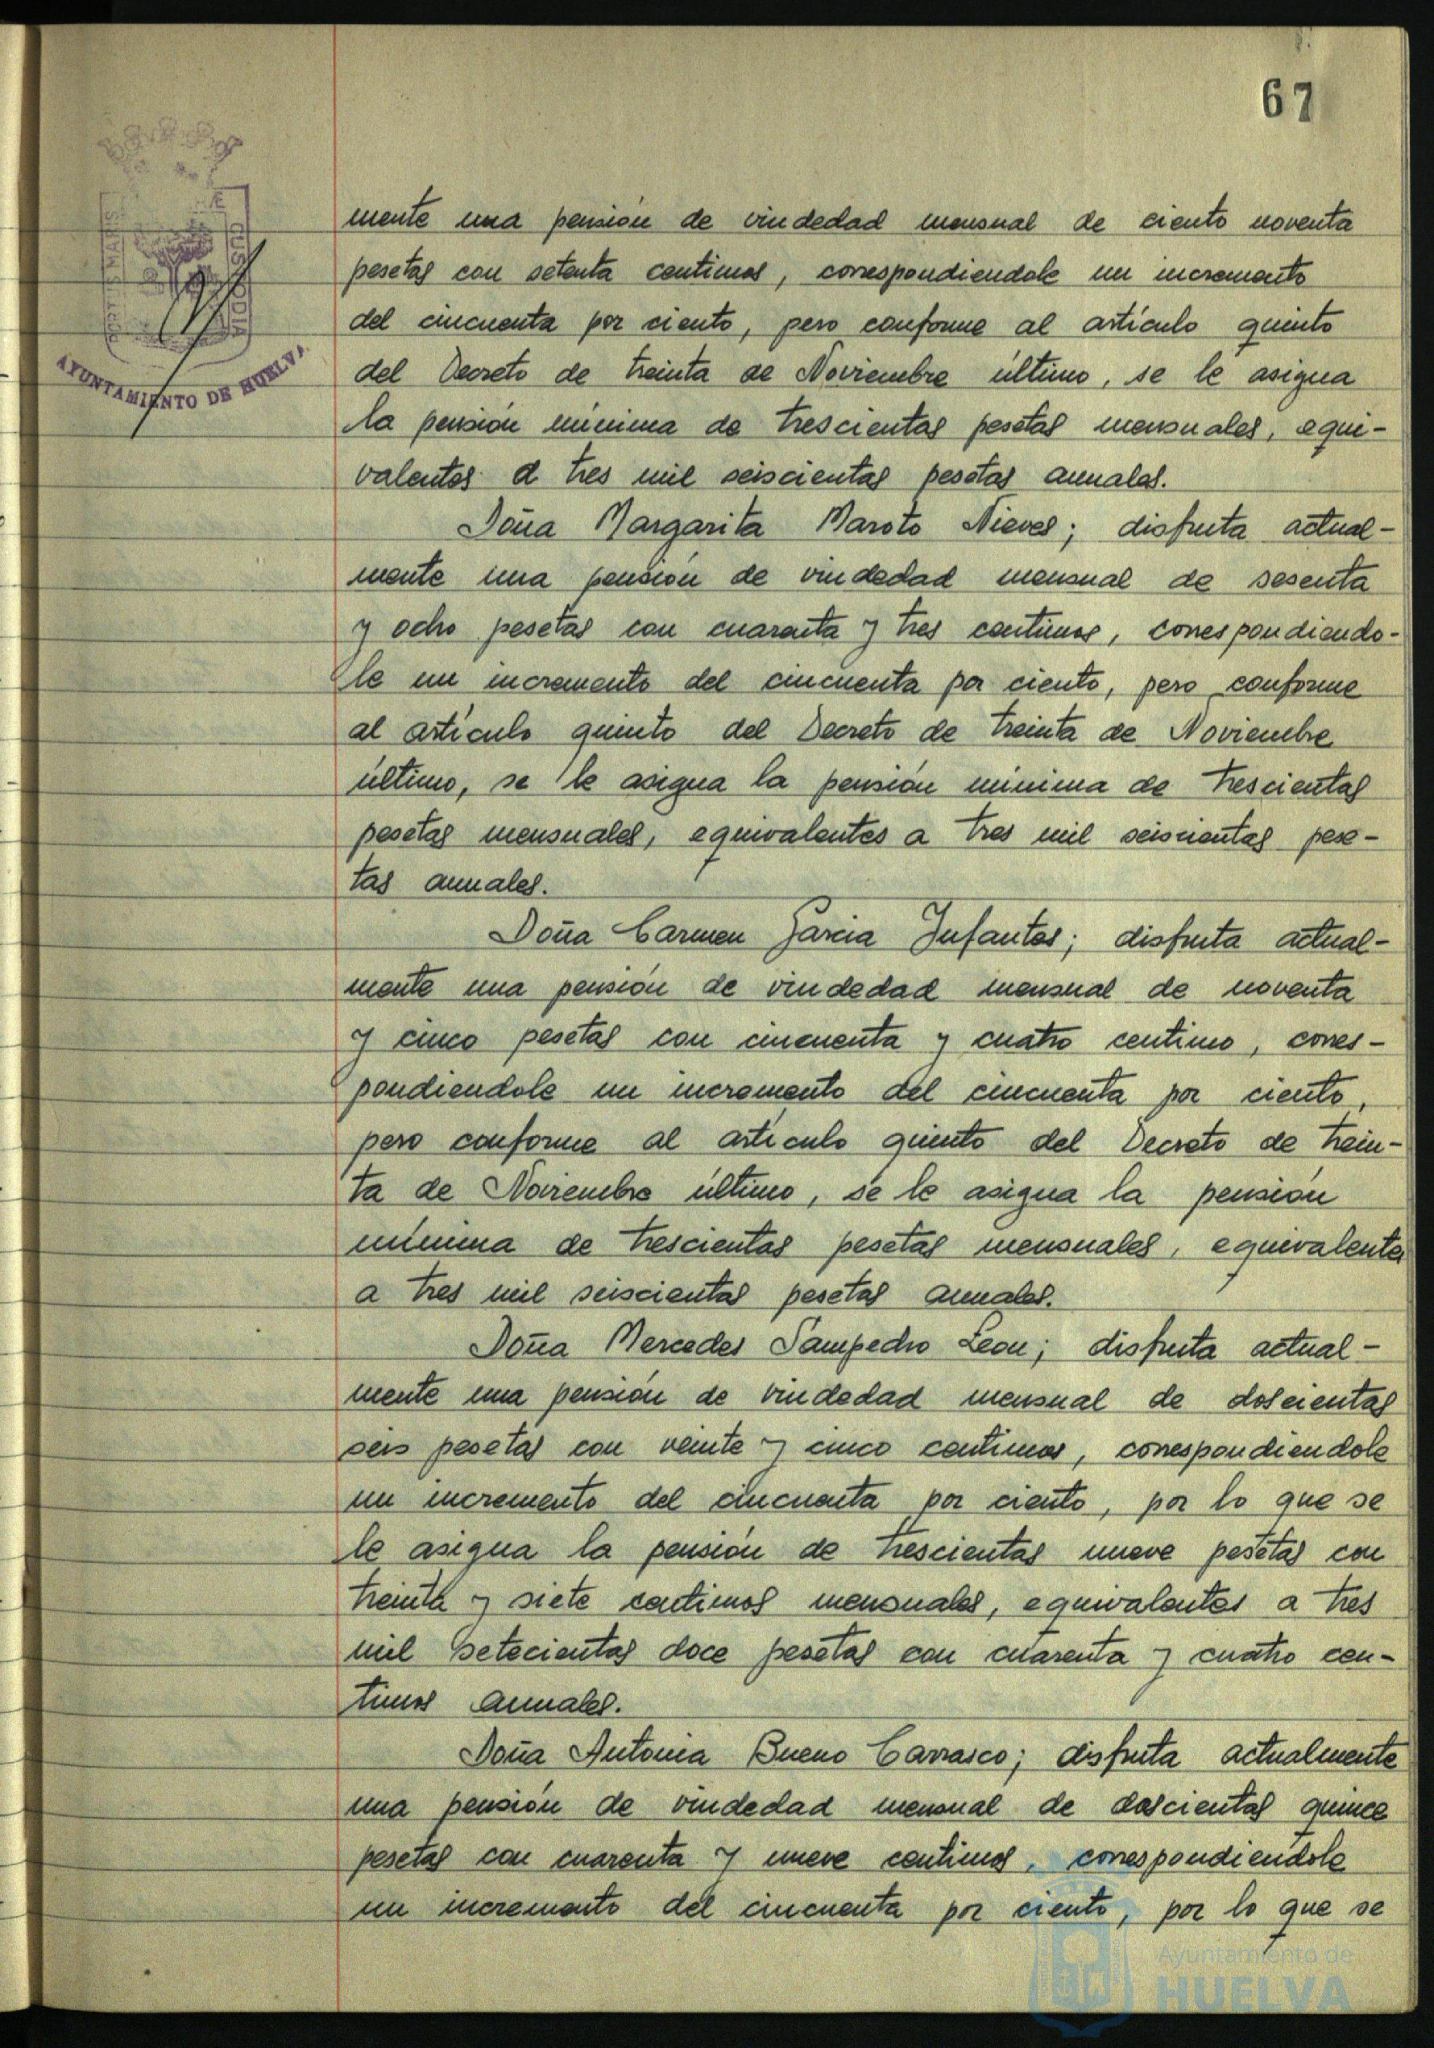 67
PORTUS MARIS
CUSTODIA
AYUNTAMIENTO DE HUELVA
mente una pensión de viudedad mensual de ciento noventa
pesetas con setenta centimos, correspondiendole un incremento
del cincuenta por ciento, pero conforme al artículo quinto
del Decreto de treinta de Noviembre último, se le asigna
la pensión mínima de trescientas pesetas mensuales, equi-
valentes a tres mil seiscientas pesetas anuales.
Doña Margarita Maroto Nieves; disfruta actual-
mente una pensión de viudedad mensual de sesenta
y ocho pesetas con cuarenta y tres centimos, correspondiendo-
le un incremento del cincuenta por ciento, pero conforme
al artículo quinto del Decreto de treinta de Noviembre
último, se le asigna la pensión mínima de trescientas
pesetas mensuales, equivalentes a tres mil seiscientas pese-
tas anuales.
Doña Carmen Garcia Infantes; disfruta actual-
mente una pensión de viudedad mensual de noventa
y cinco pesetas con cincuenta y cuatro centimo, corres-
pondiendole un incremento del cincuenta por ciento,
pero conforme al artículo quinto del Decreto de trein-
ta de Noviembre último, se le asigna la pensión
mínima de trescientas pesetas mensuales, equivalentes
a tres mil seiscientas pesetas anuales.
Doña Mercedes Sampedro Leon; disfruta actual-
mente una pensión de viudedad mensual de doscientas
seis pesetas con veinte y cinco centimos, correspondiendole
un incremento del cincuenta por ciento, por lo que se
le asigna la pensión de trescientas nueve pesetas con
treinta y siete centimos mensuales, equivalentes a tres
mil setecientas doce pesetas con cuarenta y cuatro cen-
timos anuales.
Doña Antonia Bueno Carrasco; disfruta actualmente
una pensión de viudedad mensual de doscientas quince
pesetas con cuarenta y nueve centimos, correspondiendole
un incremento del cincuenta por ciento, por lo que se
Ayuntamiento de
HUELVA